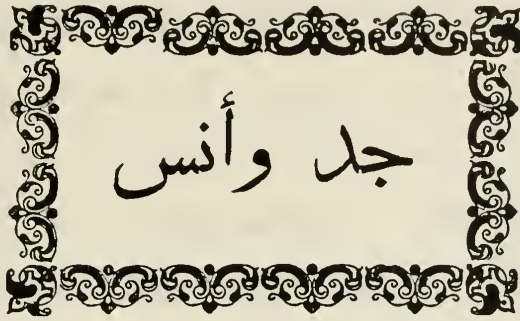 جد وأنس